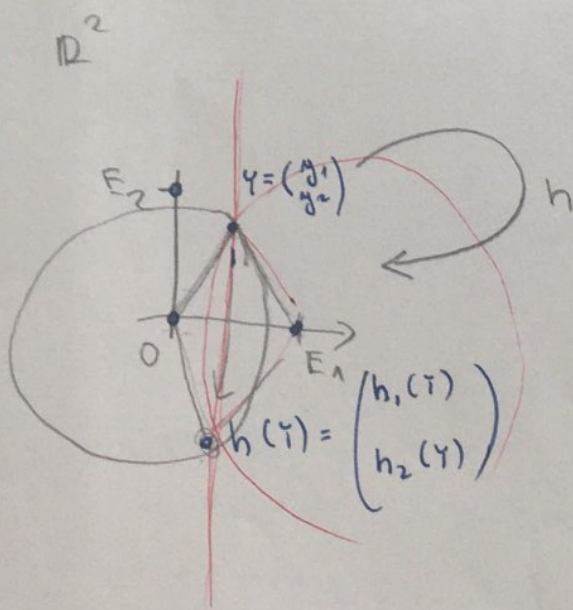 ℝ²
E₂
y = (y₁
y₂)
h
O
E₁
h(Y) = (h₁(Y)
h₂(Y))